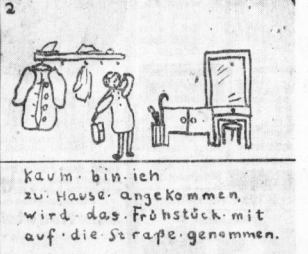 2
Kaum bin ich
zu Hause angekommen,
wird das Frühstück mit
auf die Straße genommen.